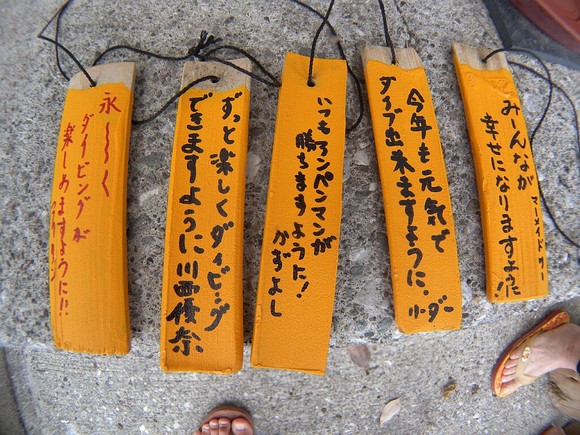 永〜〜く
ダイビングが
楽しめますように!!
ずっと楽しくダイビング
できますように 川西優奈
いつもアンパンマンが
勝ちますように!
かずよし
今年も元気で
ダイブ出来ますように。
リーダー
みーんなが
幸せになりますように!
マーメイド